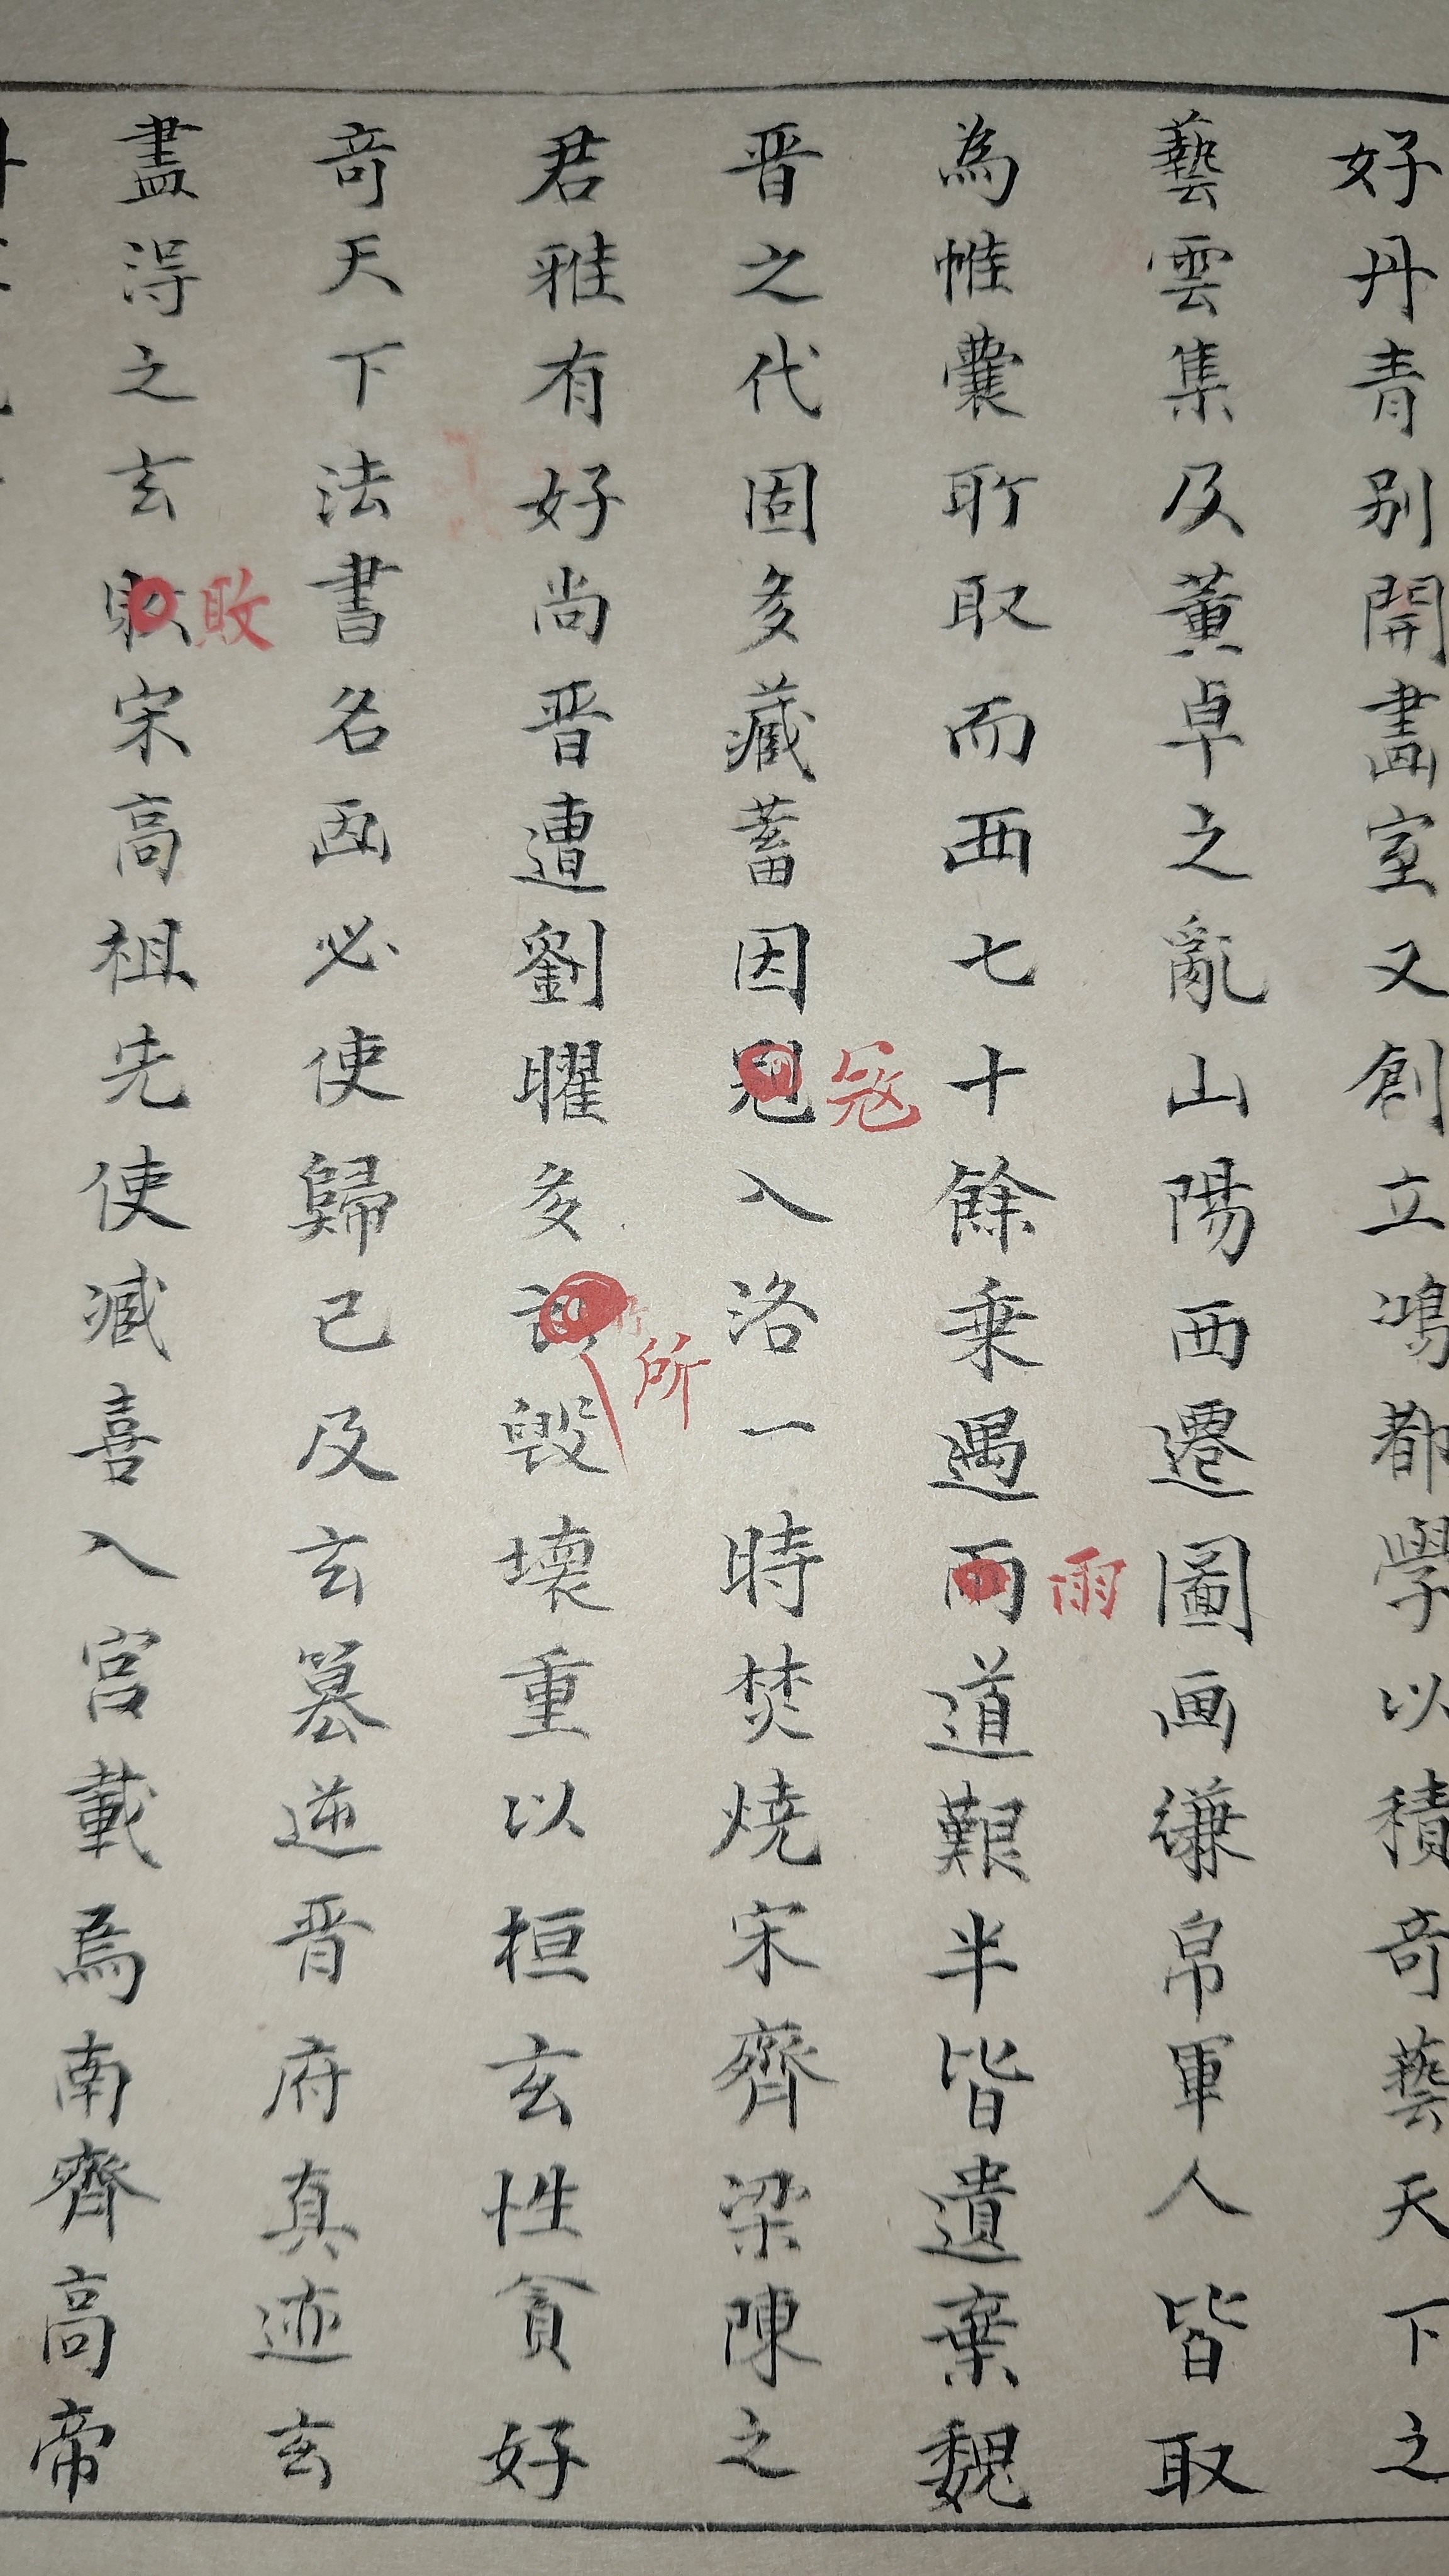 好丹青别開畫室又創立鴻都學以積奇藝天下之
藝雲集及董卓之亂山陽西遷圖画縑帛軍人皆取
為帷囊所取而西七十餘乗遇雨道艱半皆遺棄魏
晋之代固多藏蓄因寇入洛一時焚燒宋齊梁陳之
君雅有好尚晋遭劉曜多所毀壞重以桓玄性貪好
奇天下法書名画必使歸己及玄篡逆晋府真迹玄
盡得之玄敗宋高祖先使臧喜入宮載焉南齊高帝